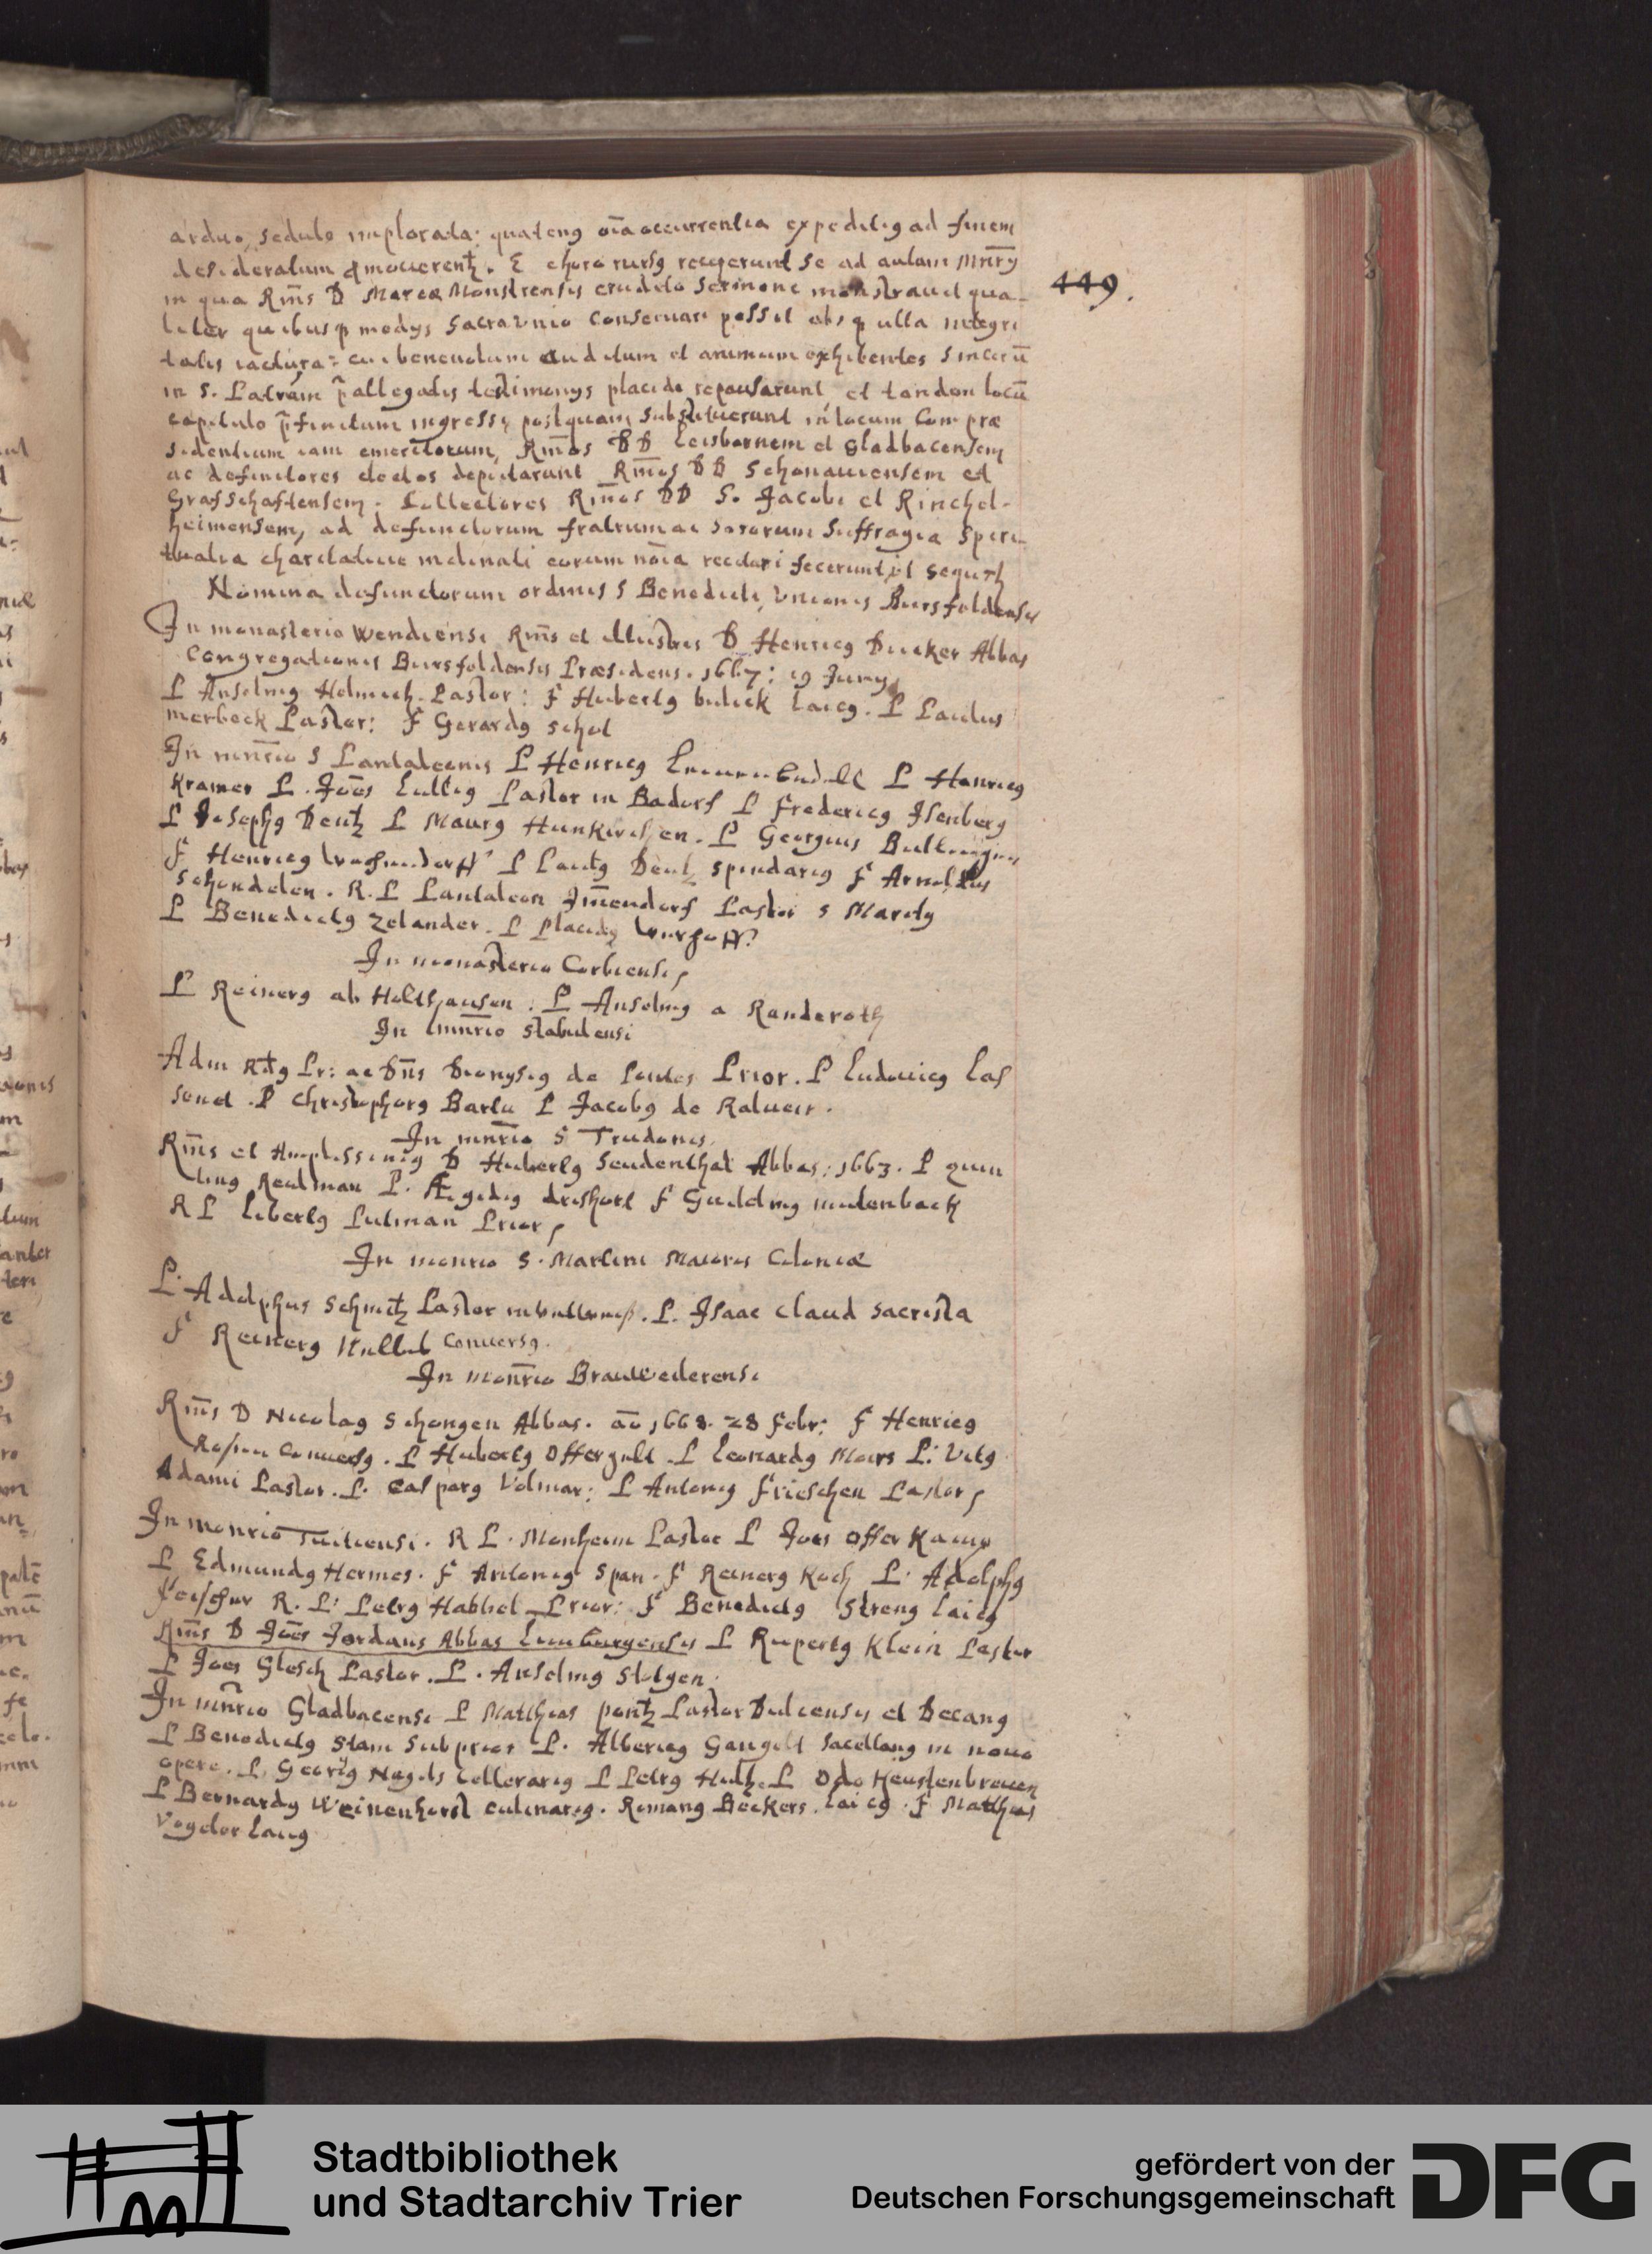 arduo, sedulo implorata: quateng oīa occurrentia expeditig ad finem
desideratum
E choro rursg receperunt se ad aulam Mnrÿ
449.
in qua Rm̄s D Marcæ Monstrensis erudito sermone monstravit qua-
liter quibusq modys sacra Vnio conservari possit absq ulla integri
tatis iactura: cui benevolum auditum et animum exhibentes sincerū
in S. Patrum p̄allegatis testimonys placide repausarunt, et tandem locū
capitulo p̄finitum ingressi, postquam substituerunt in locum Com præ
sidentium iam emeritorum, Rm̄os DD Leisbornem et Gladbacensem
ac definitores electos deputarunt Rm̄os DD Schonaviensem et
Grafschaftensem. Collectores Rm̄os DD S. Jacobi et Rinchel-
heimensem, ad defunctorum fratrum ac sororum suffragia Spiri
tualia charitative
eorum nōia recitari fecerunt, ut sequitʒ
Nomina defunctorum ordinis S Benedicti, Unionis Bursfeldensis
In monasterio Werdiensi Rm̄s et Illustris D Henricg Ducker Abbas
Congregationis Bursfeldensis Præsidens. 1667: 19 Juny,
P Anselmg Helmich Pastor: F Hubertg budick laicg. P Paulus
merbeck Pastor: F Gerardg schol
In mnr̄io S Pantaleonis P Henricg
P Henricg
Kramer P. Joēs Lultig Pastor in Badorf P Fredericg Isenberg
P Josephg Deutz P Maurg Hunkirchen. P Georgius
F Henricg
P
Deutz spindarig F Arnoldus
Schondelen. R. P Pantaleon Im̄endorf Pastor S Mardg
P Benedictg Zelander. P Placidg
In monasterio Corbiensi,
P Reinerg ab Holthausen. P Anselmg a Randeroth
In mnr̄io stabulensi
Adm Rdg Pr: ac Dn̄s Dionysig de Pontes Prior. P Ludovicg Las
sonet. P Christophorg Barlu P Jacobg de Ralueir.
In mnr̄io S Trudonis
Rm̄s et Amplissimg D Hubertg Seudenthal Abbas, 1663. P quin
ting Realman P. Ægidig drishort F
R P Libertg Putman Prior,
In monrio S. Martini Maioris Coloniæ
P. Adolphus Schmitz Pastor
P. Isaac Claud sacrista
F Reinerg
Conversg.
In monr̄io Brauweilerensi
Rm̄s D Nicolag Schongen Abbas. aō 1668. 28 Febr: F Henricg
conversg. P Hubertg Offergelt. P Leonardg Moirs P: Vitg
Adami Pastor. P. Casparg Volmar: P Antonig Frieschen Pastor,
In monrio Tuitiensi. R P. Monheim Pastor P Joēs Offerkamp
P Edmundg Hermes. F Antonig Span. F Reinerg Koch P. Adolphg
R. P: Petrg Habbel Prior: F Benedictg Streng laicg
Rm̄s D Joēs Jordans Abbas Luxburgensis P Rupertg Klein Pastor
P Joēs Glesch Pastor. P. Anselmg Stolgen.
In mnr̄io Gladbacensi P Matthias pontz Pastor Dulcensis et Decang
P Benedictg Stam Subprior P. Albericg Gangelt Sacellang in novo
opere. P. Georgig Nagels Cellerarig P Petrg Hultz. P Odo Heustenbreuen
P Bernardg Weinenhorst culinarig. Romang Beckers. laicg. F Matthias
Vogeler laicg
Stadtbibliothek
und Stadtarchiv Trier
gefördert von der
Deutschen Forschungsgemeinschaft
DFG